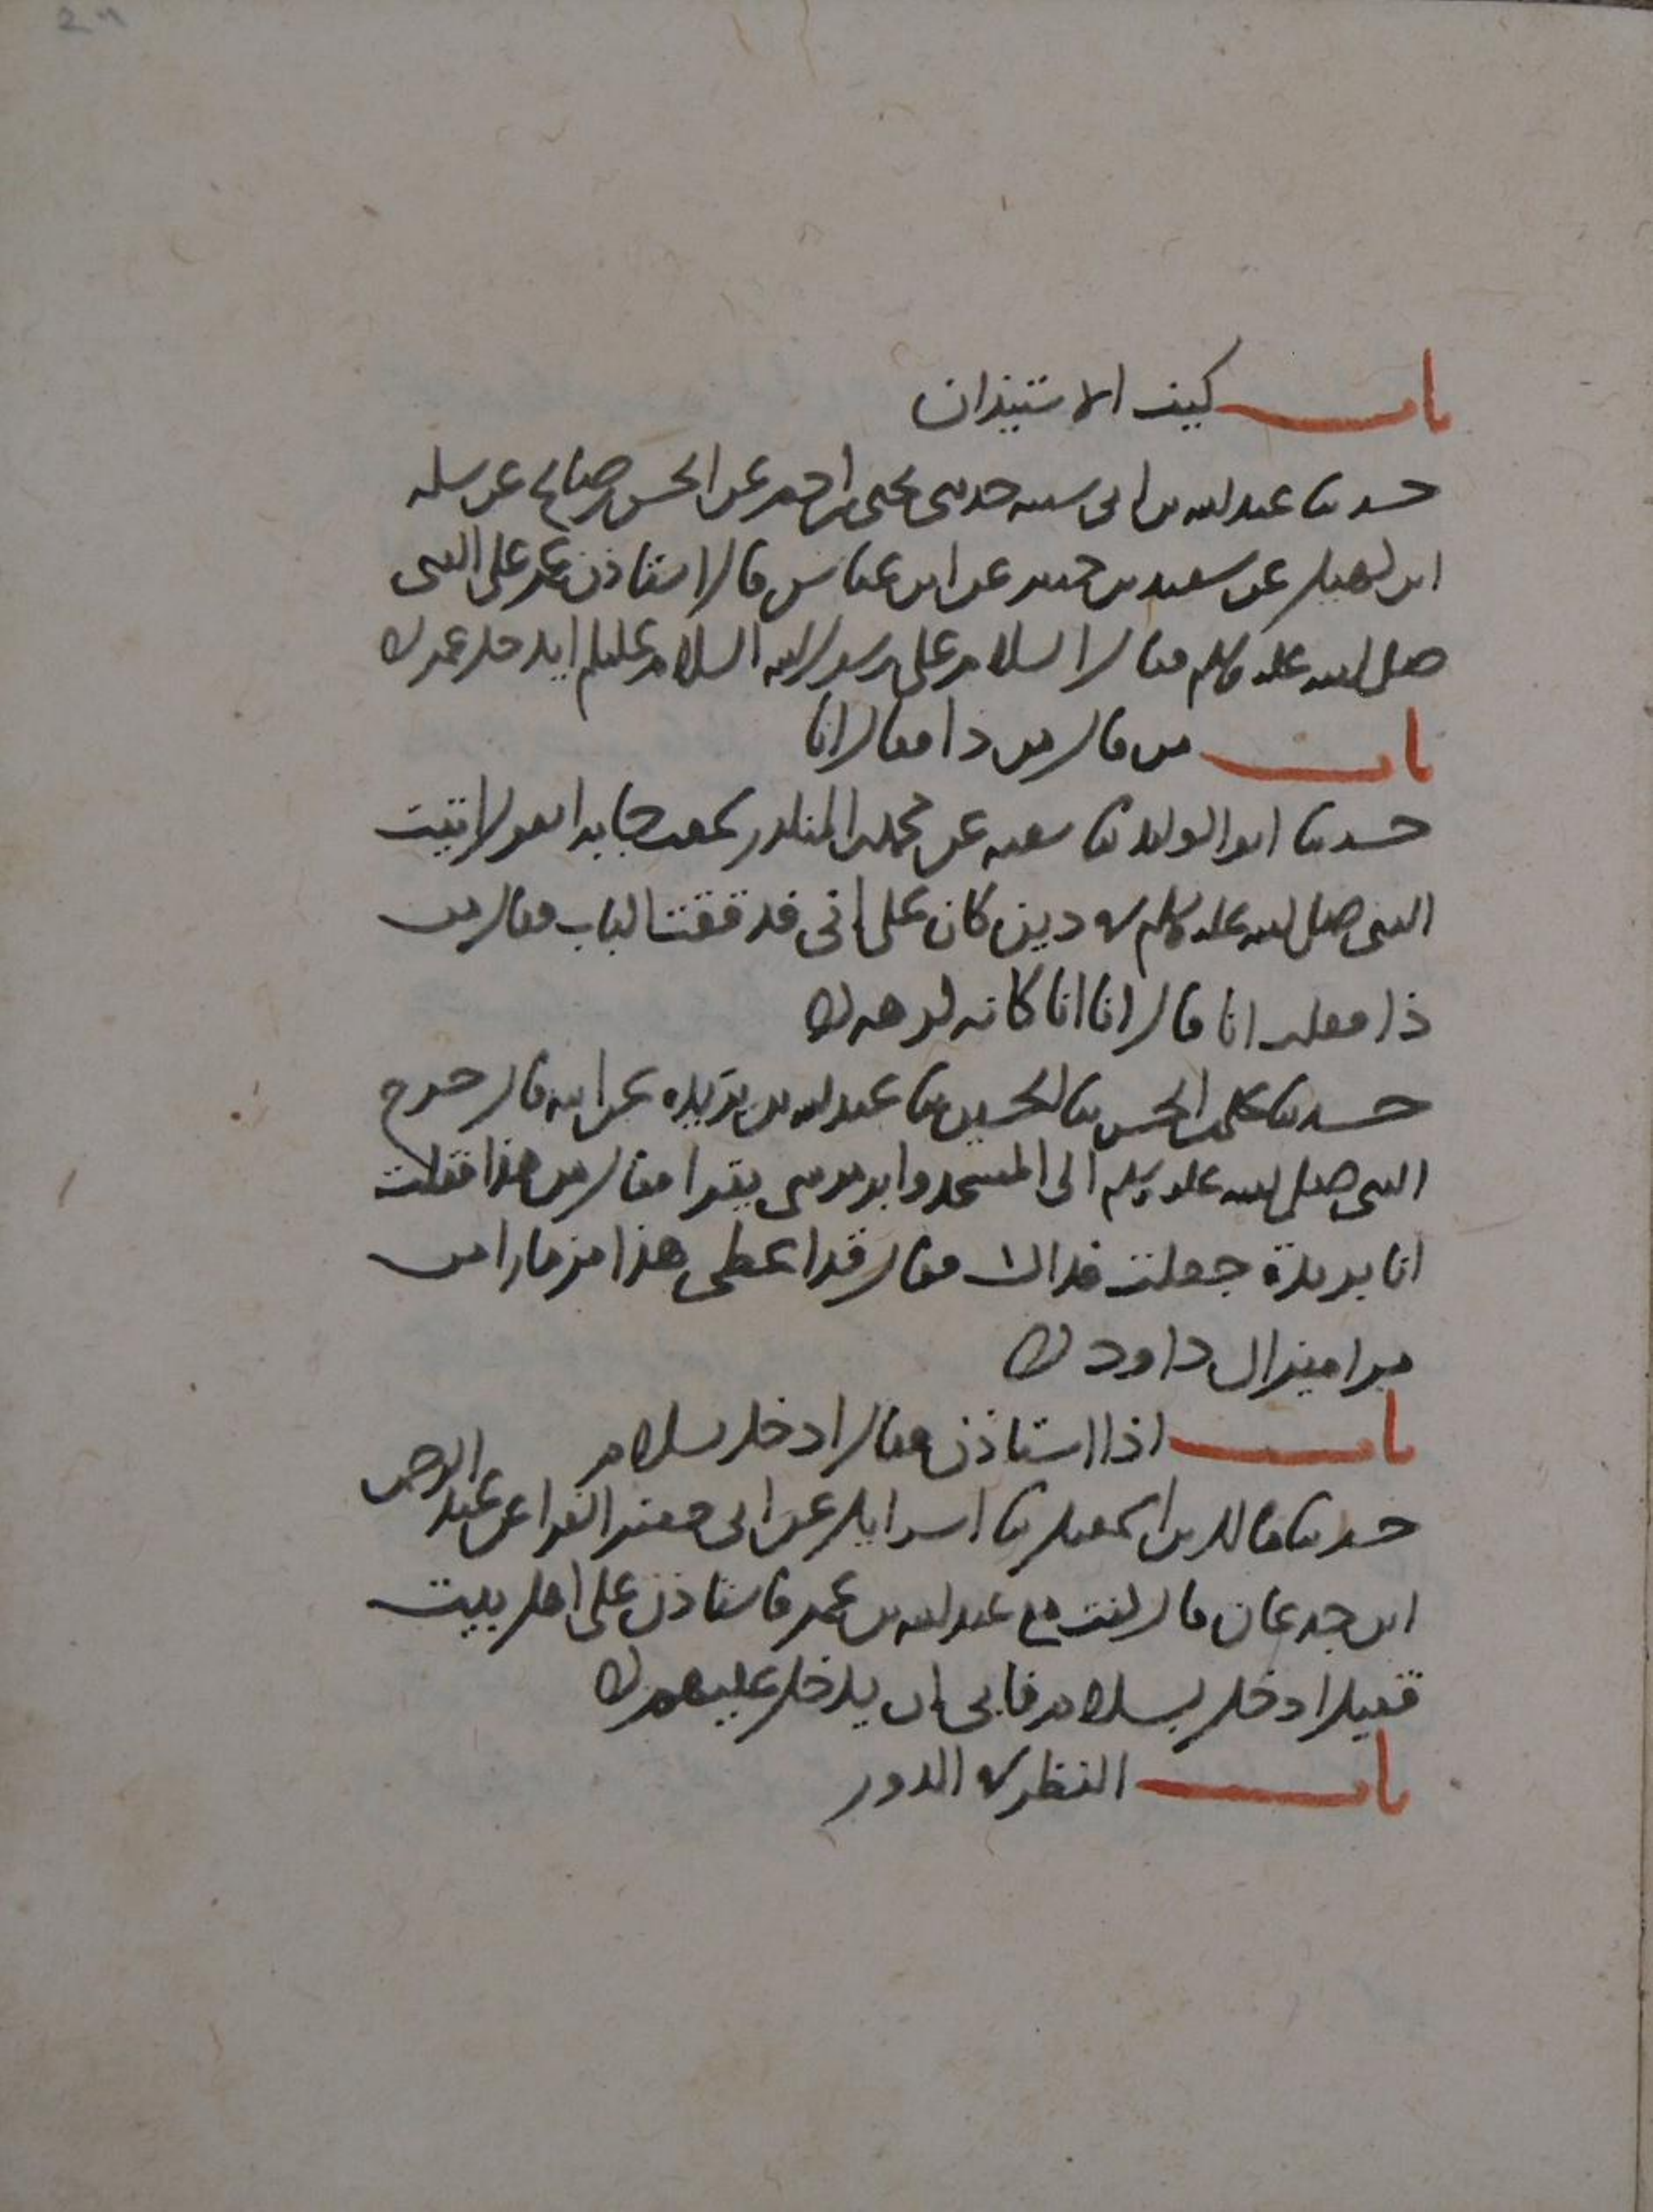 باب كيف الاستيذان
حدثنا عبد الله بن ابي شيبه حدثني يحيى بن ادم عن الحسن بن صالح عن سلمه
ابن كهيل عن سعيد بن جبير عن ابن عباس قال استاذن عمر على النبي
صلى الله عليه وسلم فقال السلام على رسول الله السلام عليكم ايدخل عمر
باب من قال من ذا فقال انا
حدثنا ابو الوليد ثنا شعبه عن محمد بن المنكدر سمعت جابرا يقول اتيت
النبي صلى الله عليه وسلم في دين كان على ابي فدققت الباب فقال من
ذا فقلت انا قال انا انا كانه كرهه
حدثنا علي بن الحسن ثنا الحسين ثنا عبد الله بن بريده عن ابيه قال خرج
النبي صلى الله عليه وسلم الى المسجد وابو موسى يقرا فقال من هذا فقلت
انا بريدة جعلت فداك فقال قد اعطي هذا مزمارا من
مزامير ال داود
باب اذا استاذن فقال ادخل بسلام
حدثنا مالك بن اسمعيل ثنا اسرايل عن ابي جعفر الفرا عن عبد الرحمن
ابن جدعان قال كنت مع عبد الله بن عمر فاستاذن على اهل بيت
فقيل ادخل بسلام فابى ان يدخل عليهم
باب النظر في الدور